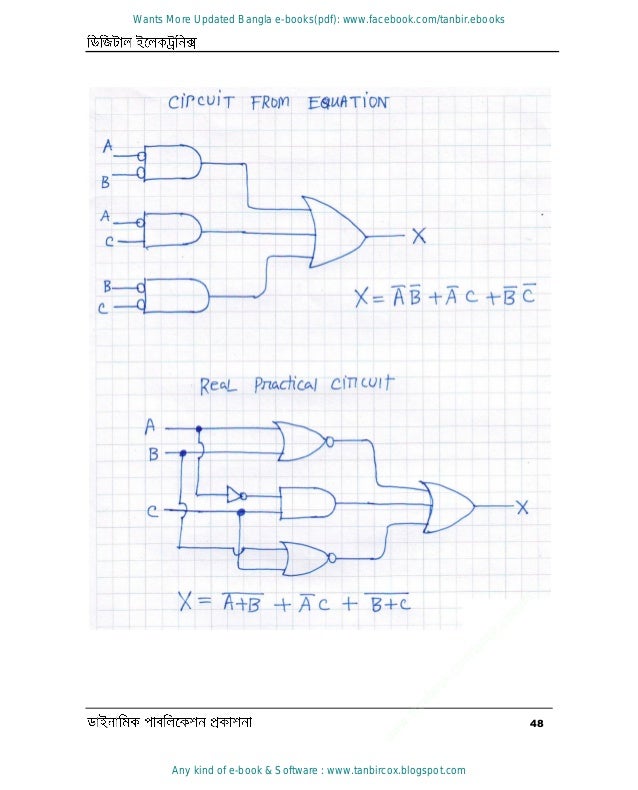 Wants More Updated Bangla e-books(pdf): www.facebook.com/tanbir.ebooks
ডিজিটাল ইলেকট্রনিক্স
CIrCUIT FROM EQUATION
A
B
A
C
B
C
X
X = A̅ B̅ + A̅ C + B̅ C̅
REAL Practical CIrcuIt
A
B
C
X
X = A̅+̅B̅ + A̅ C + B̅+̅C̅
ডাইনামিক পাবলিকেশন প্রকাশনা
48
Any kind of e-book & Software : www.tanbircox.blogspot.com